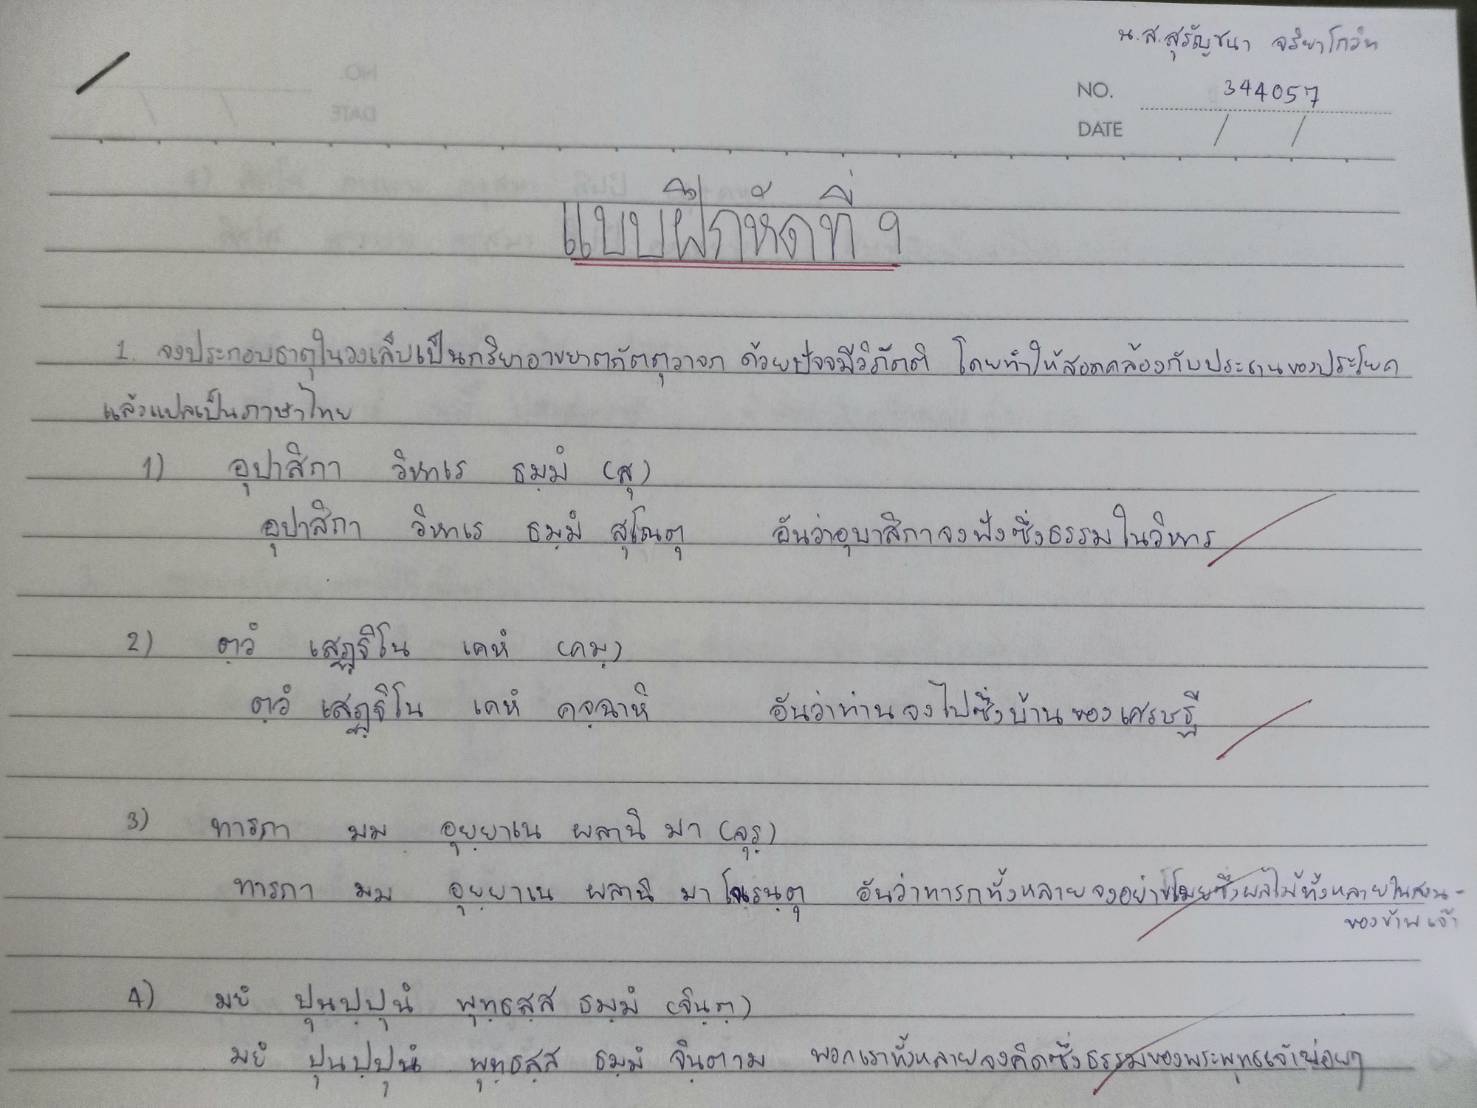 น.ส.สุรัญชนา จริยาโกวิท
NO. 344057
DATE / /
แบบฝึกหัดที่ ๆ
1. จงประกอบธาตุในวงเล็บเป็นกริยาอาขยาตกัตตุวาจก ด้วยปัจจมีวิภัตติ โดยทำให้สอดคล้องกับประธานของประโยค
แล้วแปลเป็นภาษาไทย
1) อุปาสิกา วิหาเร ธมฺมํ (สุ)
อุปาสิกา วิหาเร ธมฺมํ สุโณตุ อันว่าอุบาสิกาจงฟังซึ่งธรรมในวิหาร
2) ตฺวํ เสฏฺฐิโน เคหํ (คมฺ)
ตฺวํ เสฏฺฐิโน เคหํ คจฺฉาหิ อันว่าท่านจงไปซึ่งบ้านของเศรษฐี
3) ทารกา มม อุยฺยาเน ผลานิ มา (จุรฺ)
ทารกา มม อุยฺยาเน ผลานิ มา โจเรนฺตุ อันว่าทารกทั้งหลายจงอย่าขโมยซึ่งผลไม้ทั้งหลายในสวน-
ของข้าพเจ้า
4) มยํ ปุนปฺปุนํ พุทฺธสฺส ธมฺมํ (จินฺตฺ)
มยํ ปุนปฺปุนํ พุทฺธสฺส ธมฺมํ จินฺตาม พวกเราทั้งหลายจงคิดซึ่งธรรมของพระพุทธเจ้าบ่อยๆ